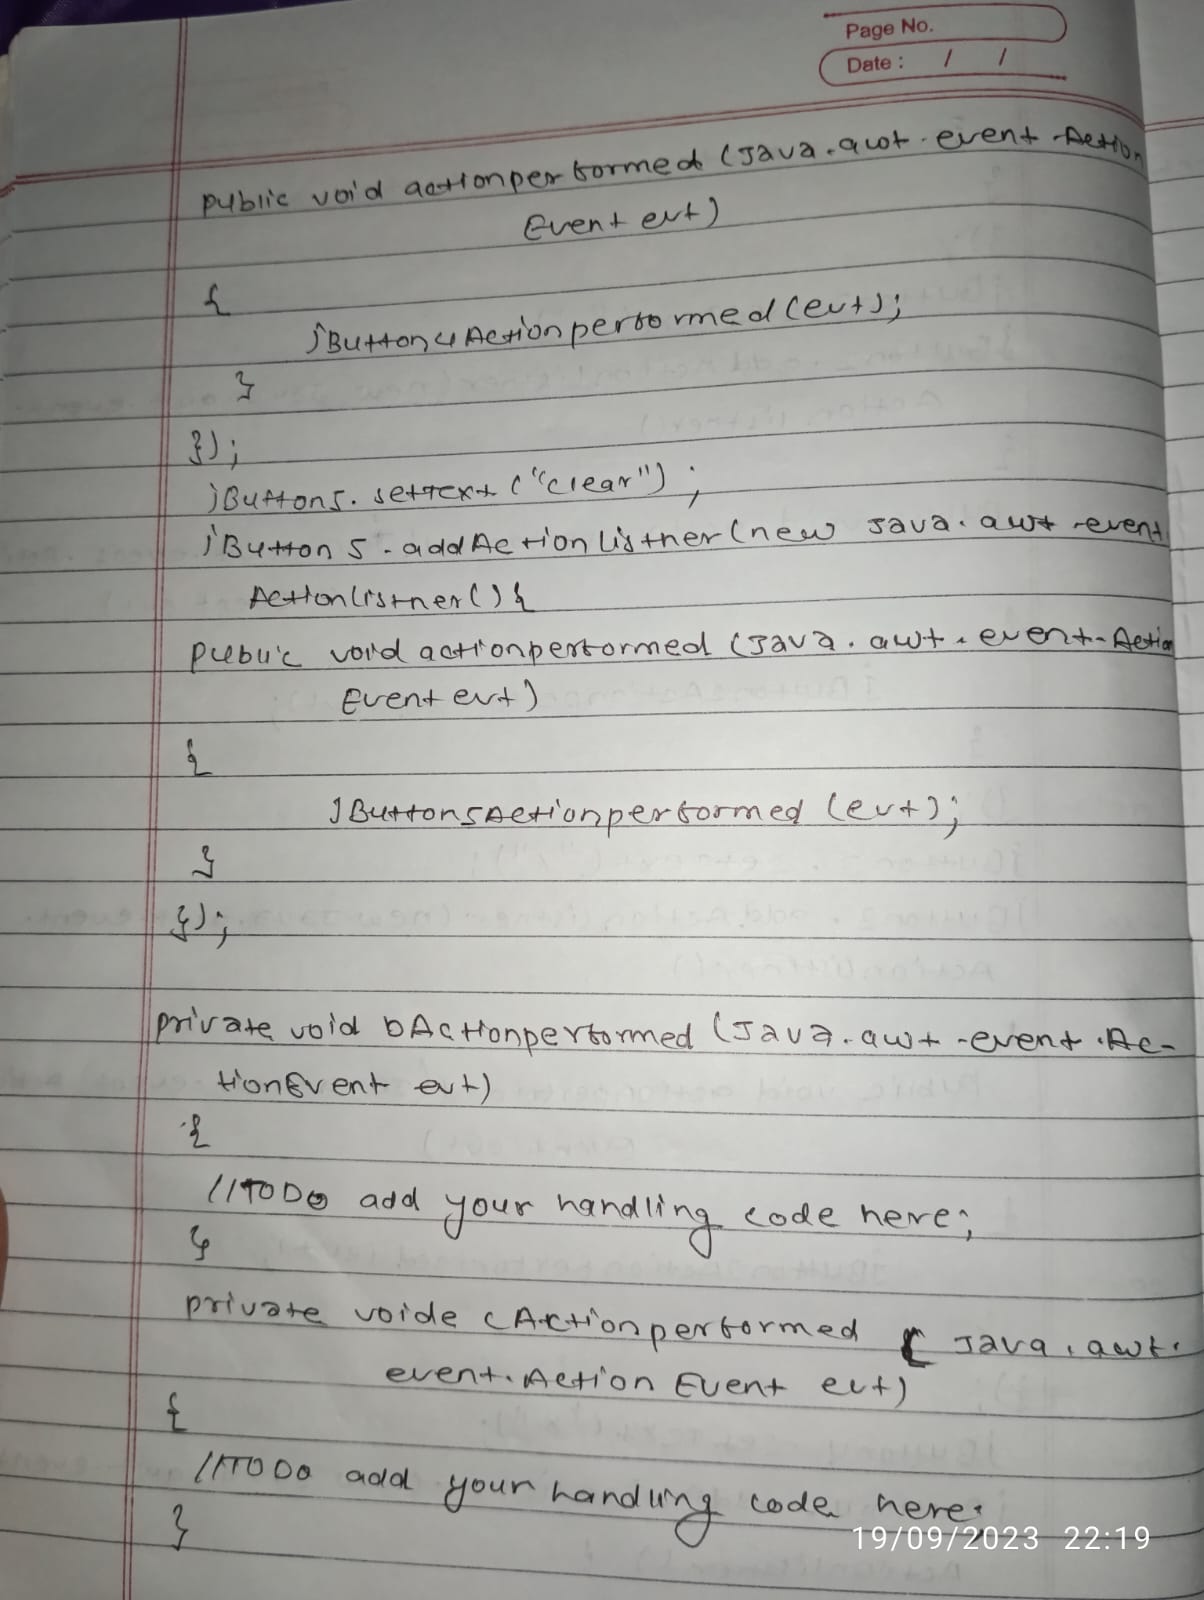 Page No.
Date : / /
public void actionperformed (Java.awt.event.Action
Event evt)
{
jButton4Actionperformed (evt);
}
});
jButton5.setText ("clear");
jButton5.addActionListner(new Java.awt.event.
ActionListner(){
public void actionperformed (Java.awt.event.Action
Event evt)
{
JButton5Actionperformed (evt);
}
});
private void bActionperformed (Java.awt.event.Ac-
tionEvent evt)
{
//TODO add your handling code here;
}
private voide cActionperformed ( Java.awt.
event.Action Event evt)
{
//TODO add your handling code here:
}
19/09/2023 22:19